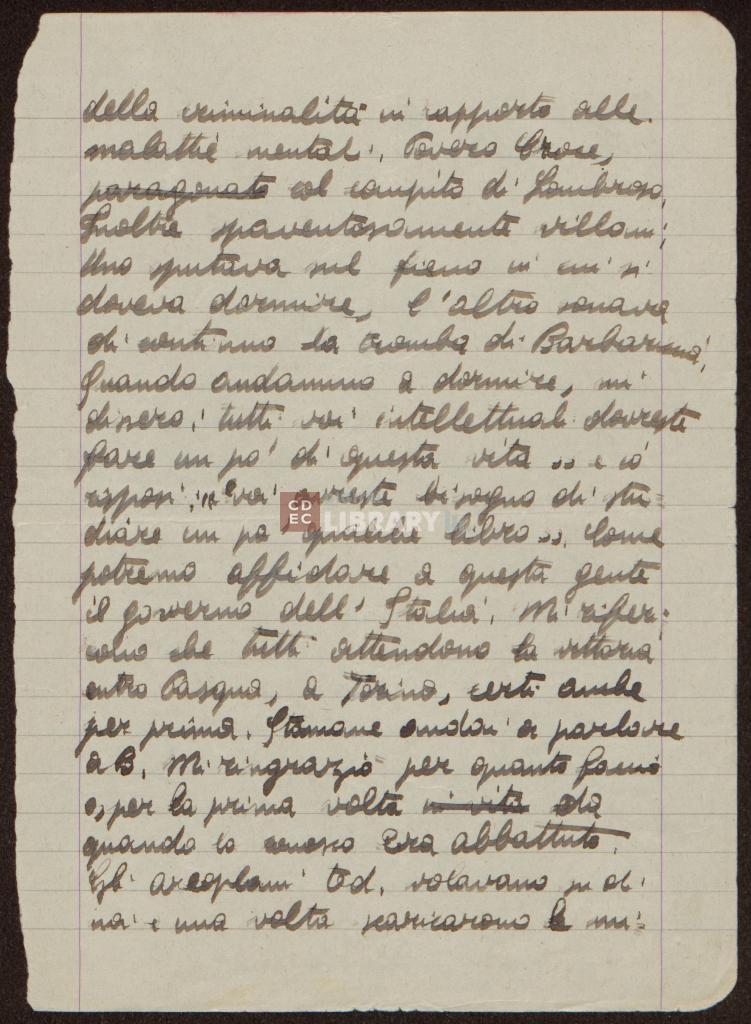 della criminalità in rapporto alle
malattie mentali. Povero Croce,
paragonato col compito di Lombroso.
Inoltre spaventosamente villani,
Uno sputava sul fieno in cui si
doveva dormire, l'altro sonava
di continuo la tromba di
Quando andammo a dormire, mi
dissero: tutti voi intellettuali dovreste
fare un po' di questa vita „ e io
risposi: "e voi avreste bisogno di stu-
diare un po' qualche libro „. Come
potremo affidare a questa gente
il governo dell'Italia. Mi riferi-
scono che tutti attendono la vittoria
entro Pasqua, a Torino, certi anche
per prima. Stamane andai a parlare
a B. Mi ringraziò per quanto faccio
e, per la prima volta in vita da
quando lo conosco era abbattuto.
Gli aeroplani ted. volavano su di
noi e una volta scaricarono le mi-
CDEC LIBRARY